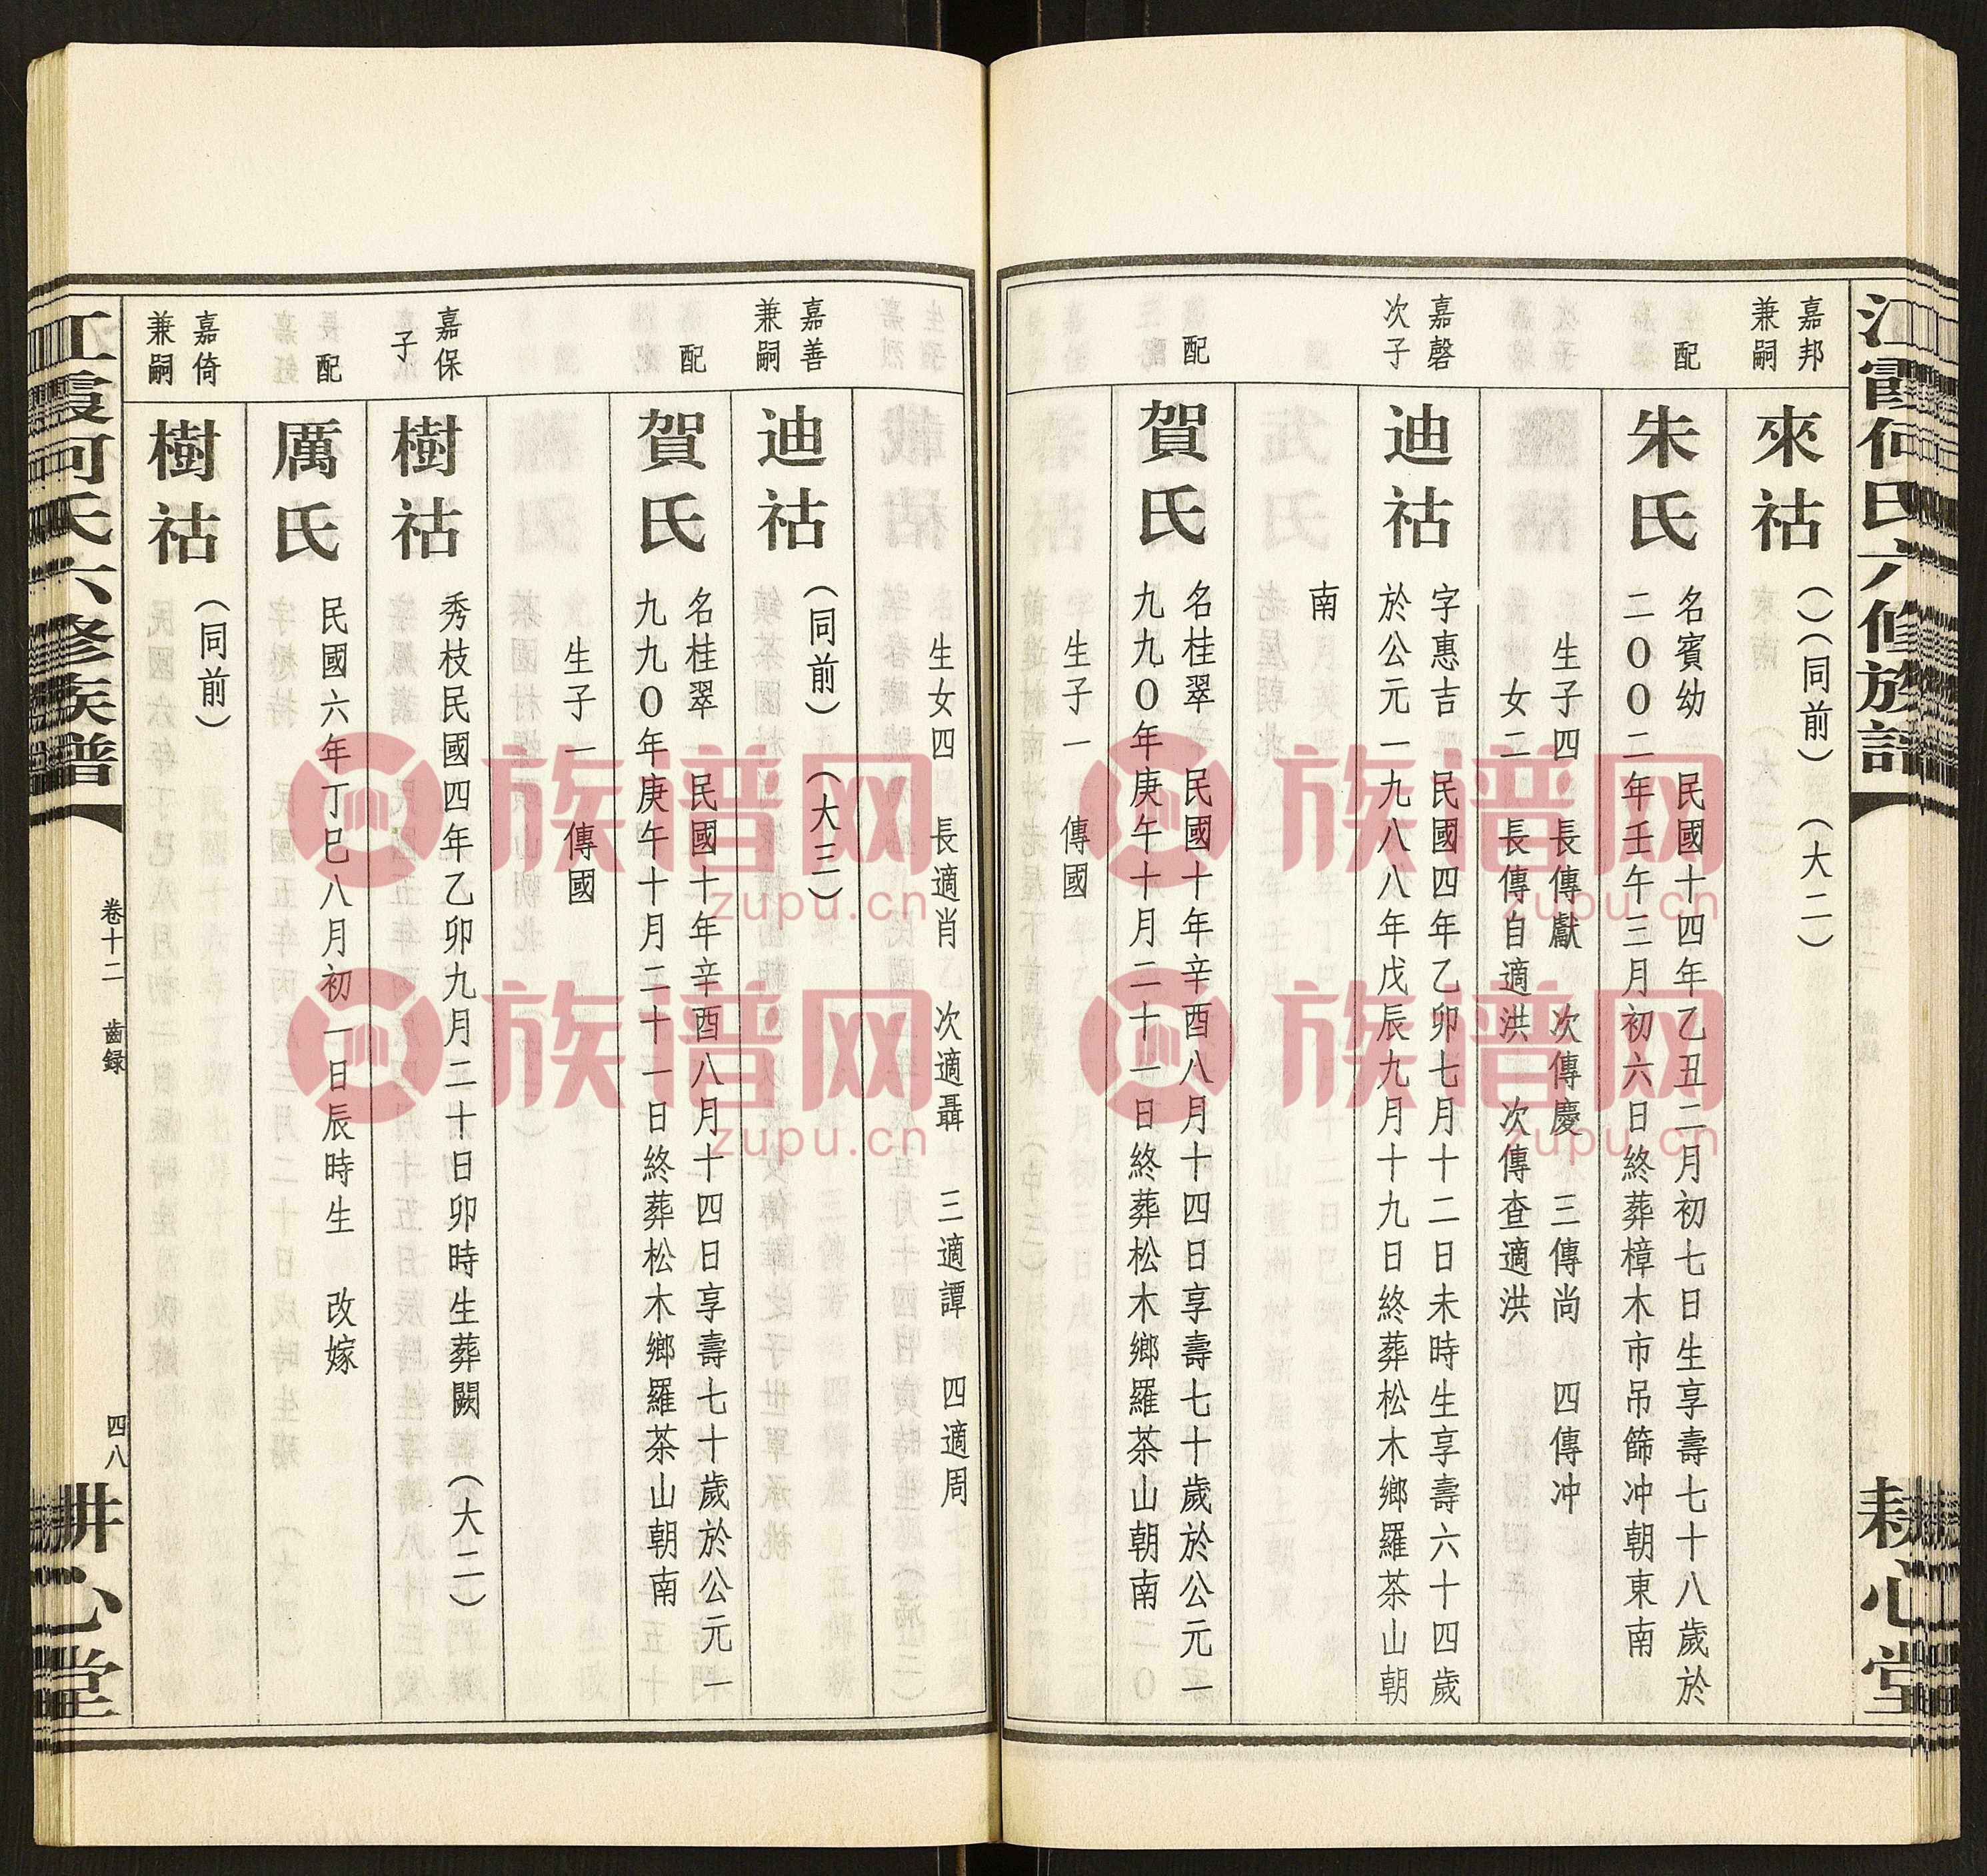 江霞何氏六修族譜
耕心堂
嘉邦
兼嗣
來祜
()(同前)(大二)
配
朱氏
名賓幼 民國十四年乙丑二月初七日生享壽七十八歲於
二00二年壬午三月初六日終葬樟木市吊篩冲朝東南
生子四 長傳獻 次傳慶 三傳尚 四傳冲
女二 長傳自適洪 次傳查適洪
嘉磬
次子
迪祜
字惠吉 民國四年乙卯七月十二日未時生享壽六十四歲
於公元一九八八年戊辰九月十九日終葬松木鄉羅茶山朝
南
配
賀氏
名桂翠 民國十年辛酉八月十四日享壽七十歲於公元一
九九0年庚午十月二十一日終葬松木鄉羅茶山朝南
生子一 傳國
生女四 長適肖 次適聶 三適譚 四適周
嘉善
兼嗣
迪祜
(同前)(大三)
配
賀氏
名桂翠 民國十年辛酉八月十四日享壽七十歲於公元一
九九0年庚午十月二十一日終葬松木鄉羅茶山朝南
生子一 傳國
嘉保
子
樹祜
秀枝民國四年乙卯九月二十日卯時生葬闕(大二)
配
厲氏
民國六年丁巳八月初一日辰時生 改嫁
嘉倚
兼嗣
樹祜
(同前)
江霞何氏六修族譜
卷十二 齒録
四八
耕心堂
族谱网
zupu.cn
族谱网
zupu.cn
族谱网
zupu.cn
族谱网
zupu.cn